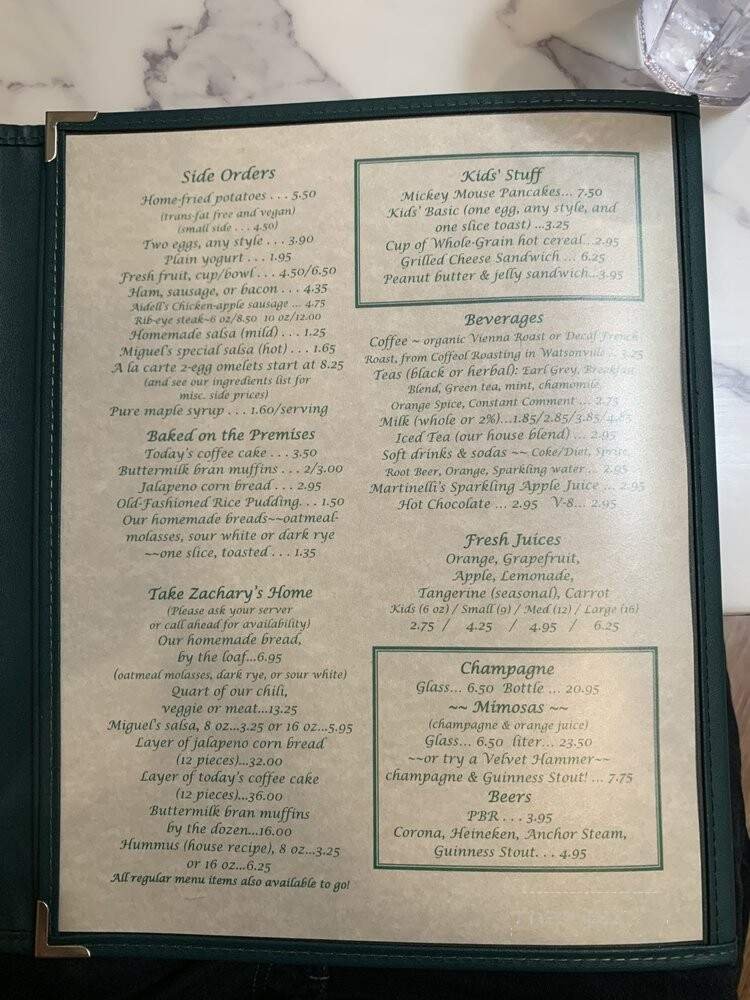 Side Orders
Home-fried potatoes . . . 5.50
(trans-fat free and vegan)
(small side . . . 4.50)
Two eggs, any style . . . 3.90
Plain yogurt . . . 1.95
Fresh fruit, cup/bowl . . . 4.50/6.50
Ham, sausage, or bacon . . . 4.35
Aidell's Chicken-apple sausage ... 4.75
Rib-eye steak~6 oz/8.50 10 oz/12.00
Homemade salsa (mild) . . . 1.25
Miguel's special salsa (hot) . . . 1.65
A la carte 2-egg omelets start at 8.25
(and see our ingredients list for
misc. side prices)
Pure maple syrup . . . 1.60/serving
Baked on the Premises
Today's coffee cake . . . 3.50
Buttermilk bran muffins . . . 2/3.00
Jalapeno corn bread . . . 2.95
Old-Fashioned Rice Pudding. . . 1.50
Our homemade breads~~oatmeal-
molasses, sour white or dark rye
~~one slice, toasted . . . 1.35
Take Zachary's Home
(Please ask your server
or call ahead for availability)
Our homemade bread,
by the loaf...6.95
(oatmeal molasses, dark rye, or sour white)
Quart of our chili,
veggie or meat...13.25
Miguel's salsa, 8 oz...3.25 or 16 oz...5.95
Layer of jalapeno corn bread
(12 pieces)...32.00
Layer of today's coffee cake
(12 pieces)...36.00
Buttermilk bran muffins
by the dozen...16.00
Hummus (house recipe), 8 oz...3.25
or 16 oz...6.25
All regular menu items also available to go!
Kids' Stuff
Mickey Mouse Pancakes... 7.50
Kids' Basic (one egg, any style, and
one slice toast) ...3.25
Cup of Whole-Grain hot cereal...2.95
Grilled Cheese Sandwich ... 6.25
Peanut butter & jelly sandwich...3.95
Beverages
Coffee ~ organic Vienna Roast or Decaf French
Roast, from Coffeol Roasting in Watsonville .. 3.25
Teas (black or herbal): Earl Grey, Breakfast
Blend, Green tea, mint, chamomile,
Orange Spice, Constant Comment ... 2.75
Milk (whole or 2%)...1.85/2.85/3.85/4.85
Iced Tea (our house blend) ... 2.95
Soft drinks & sodas ~~ Coke/Diet, Sprite,
Root Beer, Orange, Sparkling water ... 2.95
Martinelli's Sparkling Apple Juice ... 2.95
Hot Chocolate ... 2.95 V-8... 2.95
Fresh Juices
Orange, Grapefruit,
Apple, Lemonade,
Tangerine (seasonal), Carrot
Kids (6 oz) / Small (9) / Med (12) / Large (16)
2.75 / 4.25 / 4.95 / 6.25
Champagne
Glass... 6.50 Bottle ... 20.95
~~ Mimosas ~~
(champagne & orange juice)
Glass... 6.50 liter... 23.50
~~or try a Velvet Hammer~~
champagne & Guinness Stout! ... 7.75
Beers
PBR . . . 3.95
Corona, Heineken, Anchor Steam,
Guinness Stout. . . 4.95